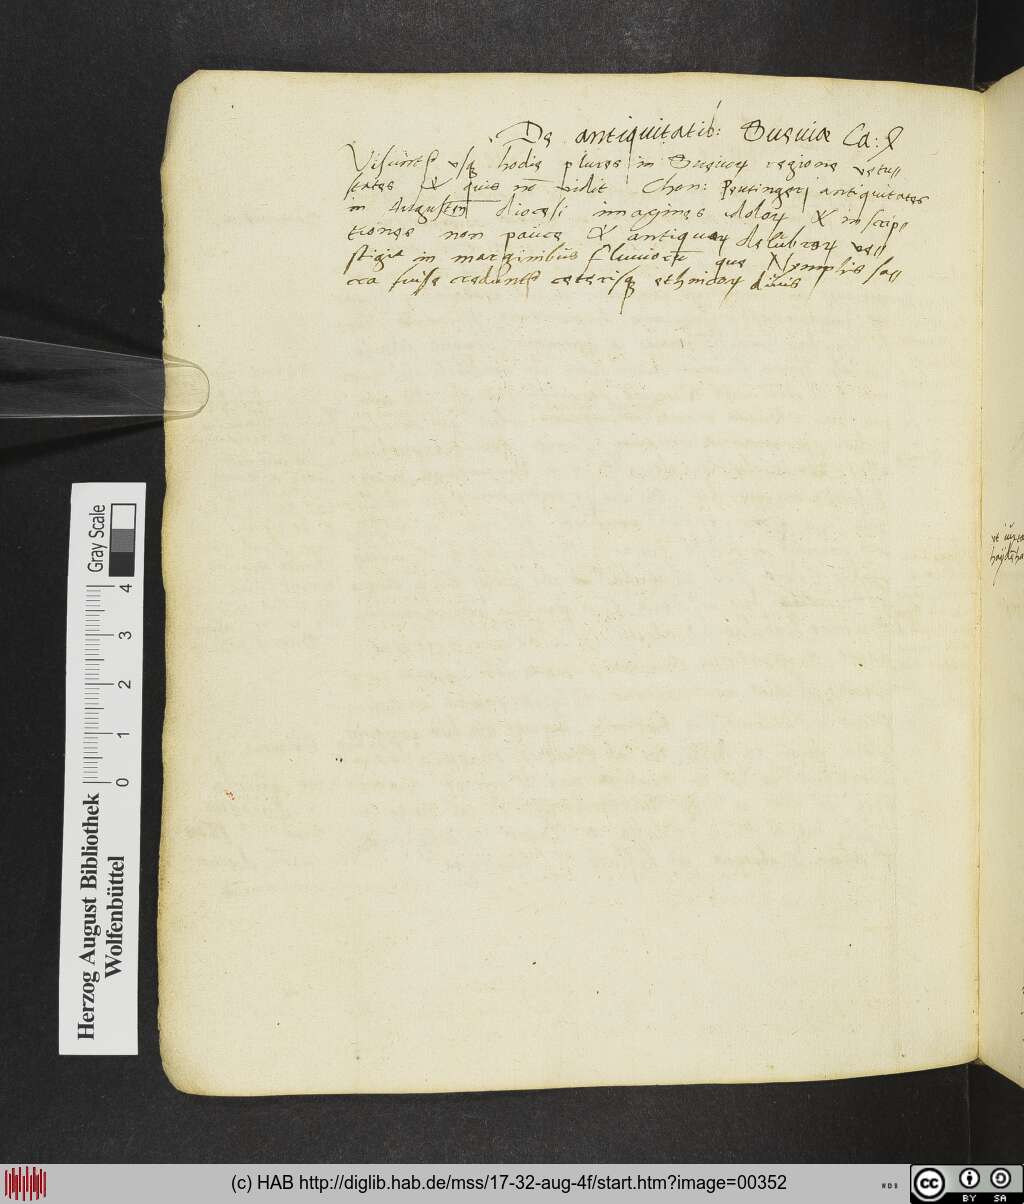 De antiquitatib: Sueviæ Ca: X
Visunt᷑ vsq̨ hodie plures in Sueuoꝝ regione vetu⸗
states & quis nō vidit Chon: Peutingerj antiquitates
in Augusten̄ diocesi imagines idoloꝝ & inscrip⸗
tiones non pauce & antiquoꝝ delubroꝝ ve⸗
stigia in marginibus fluuioru̅ que Nymphis sa⸗
cra fuisse credunt᷑ ceterisq̨ ethnicoꝝ diuis
Gray Scale
4 3 2 1 0
Herzog August Bibliothek
Wolfenbüttel
(c) HAB http://diglib.hab.de/mss/17-32-aug-4f/start.htm?image=00352
cc BY SA